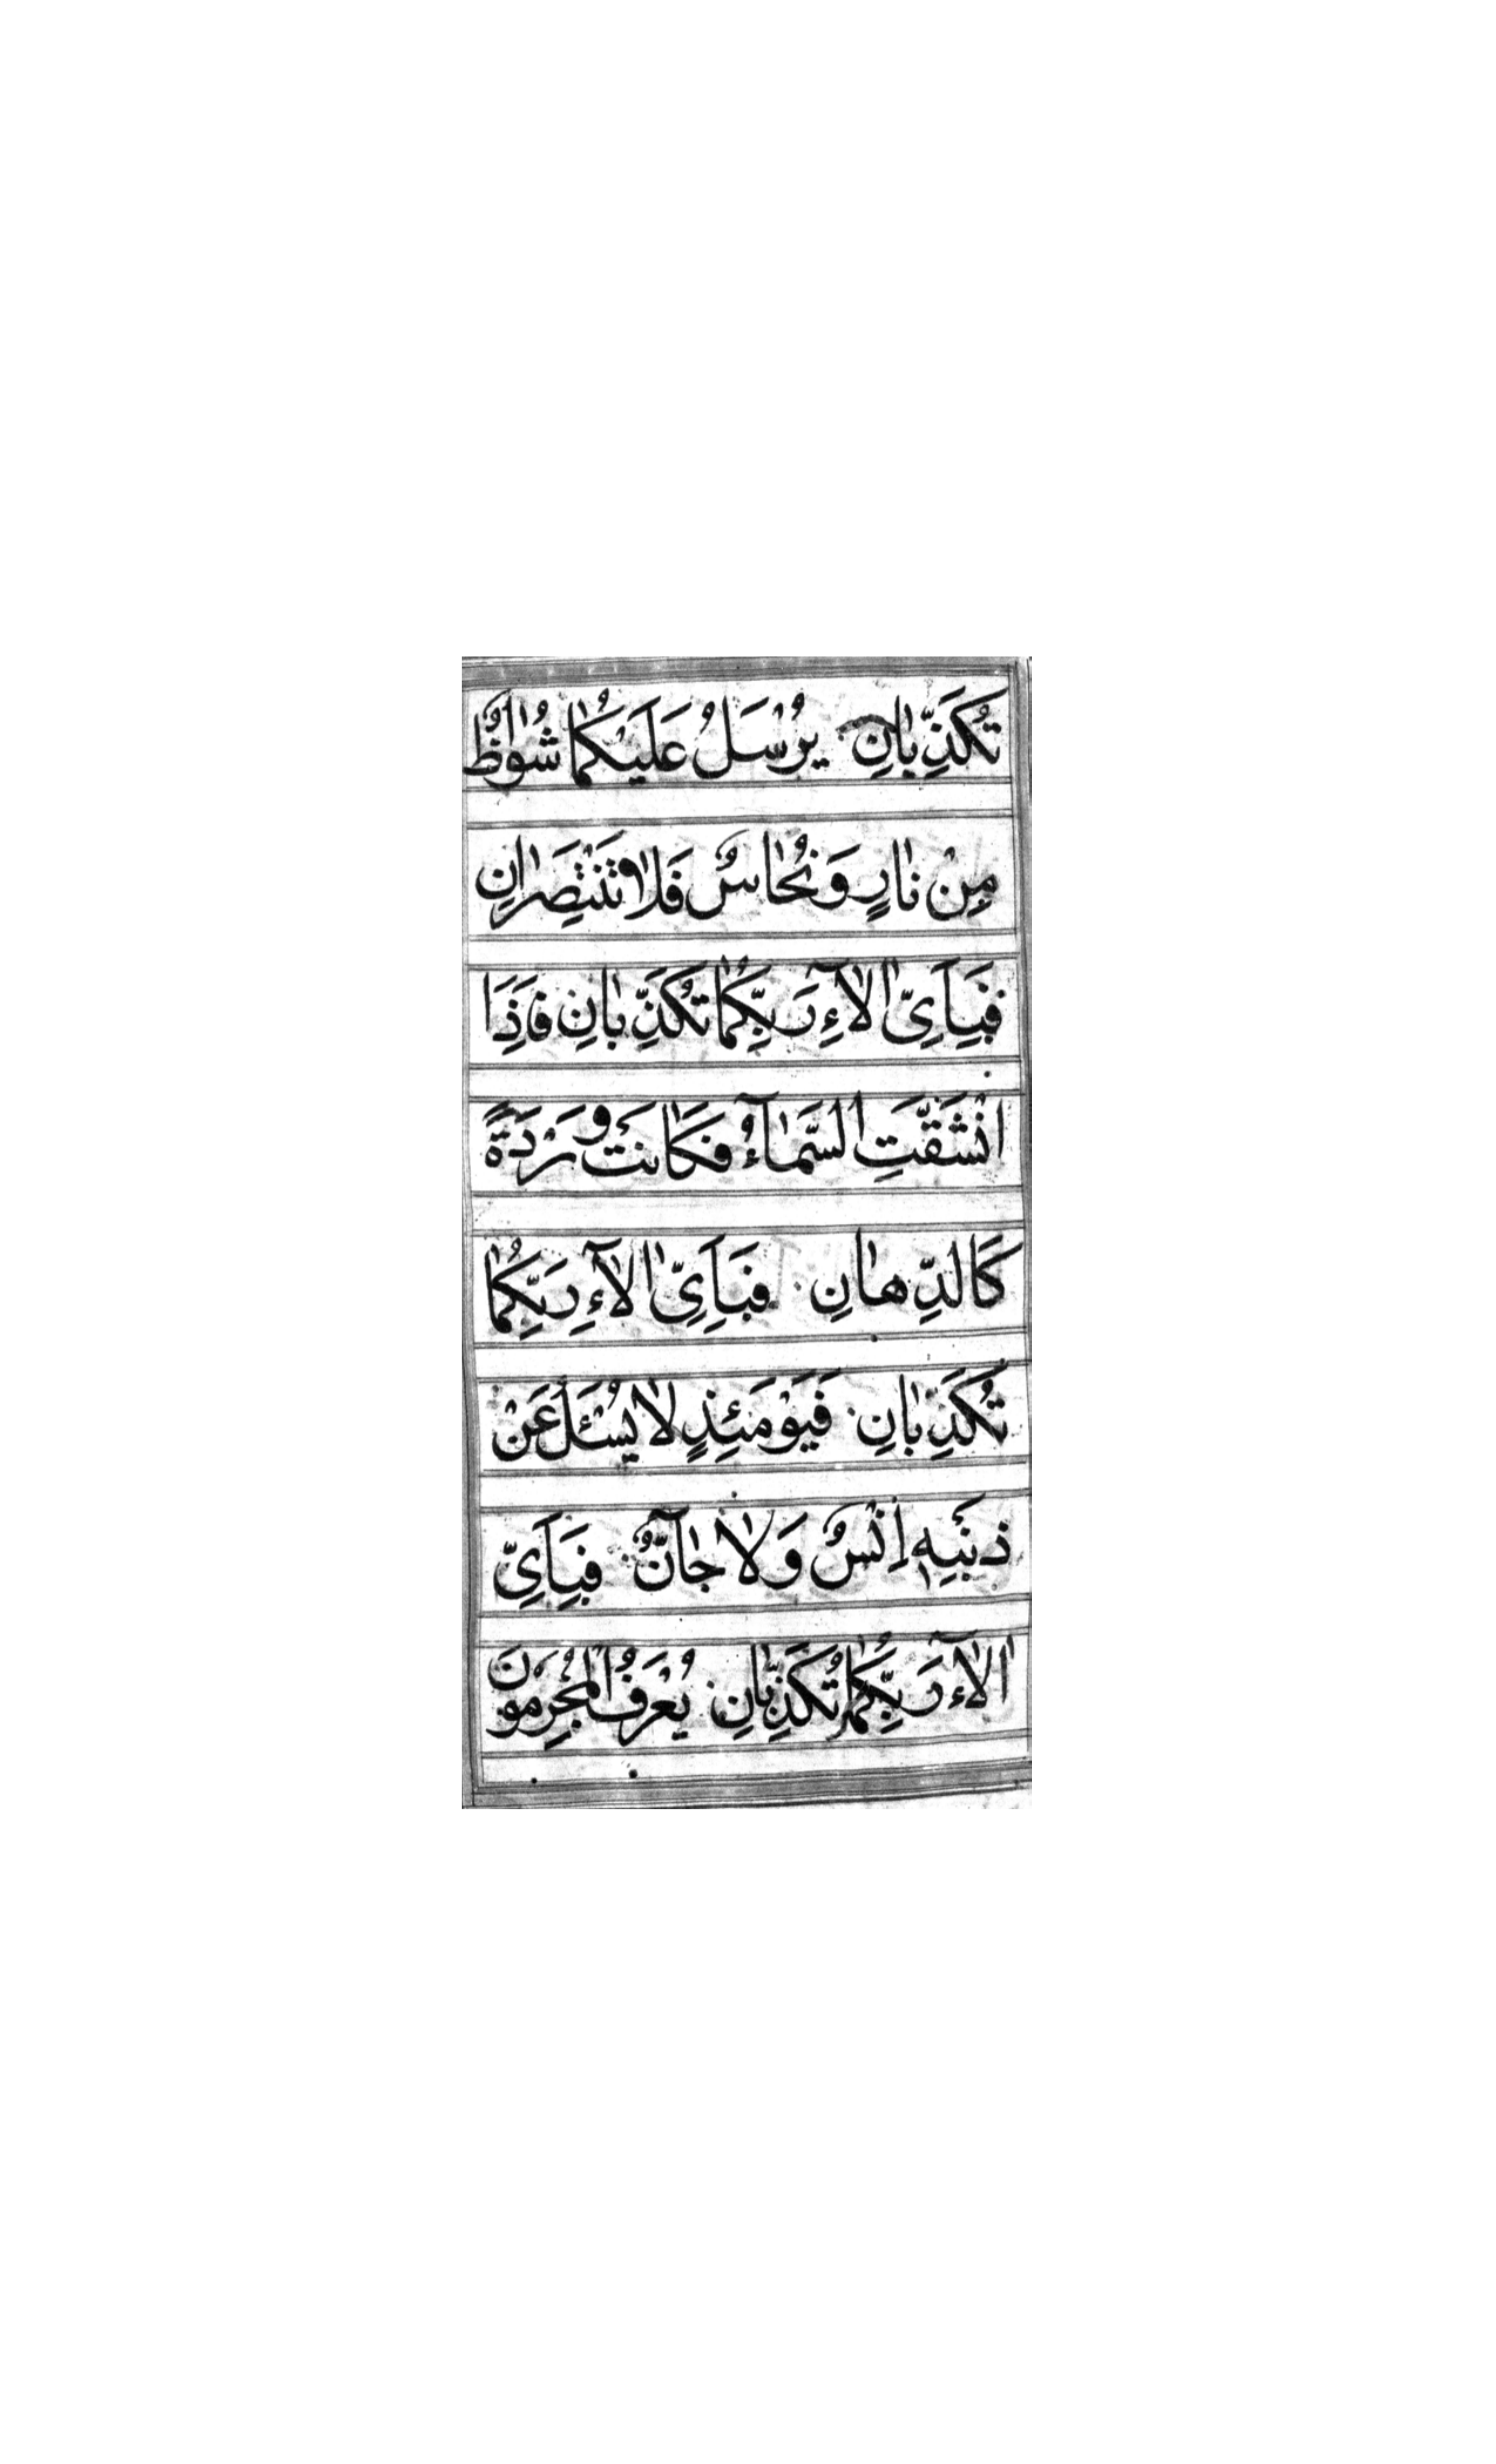 تُكَذِّبانِ يُرْسَلُ عَلَيْكُمٰا شُوٰاظٌ
مِنْ نٰارٍ وَنُحٰاسٌ فَلٰا تَنْتَصِرٰانِ
فَبِاَىِّ اٰلاٰۤءِ رَبِّكُمٰا تُكَذِّبٰانِ فَاِذَا
انْشَقَّتِ السَّمٰاۤءُ فَكٰانَتْ وَرْدَةً
كَالدِّهٰانِ فَبِاَىِّ اٰلاٰۤءِ رَبِّكُمٰا
تُكَذِّبٰانِ فَيَوْمَئِذٍ لاٰ يُسْئَلُ عَنْ
ذَنْبِهٖ اِنْسٌ وَلاٰ جٰاۤنٌّ فَبِاَىِّ
اٰلاٰۤءِ رَبِّكُمٰا تُكَذِّبٰانِ يُعْرَفُ الْمُجْرِمُونَ